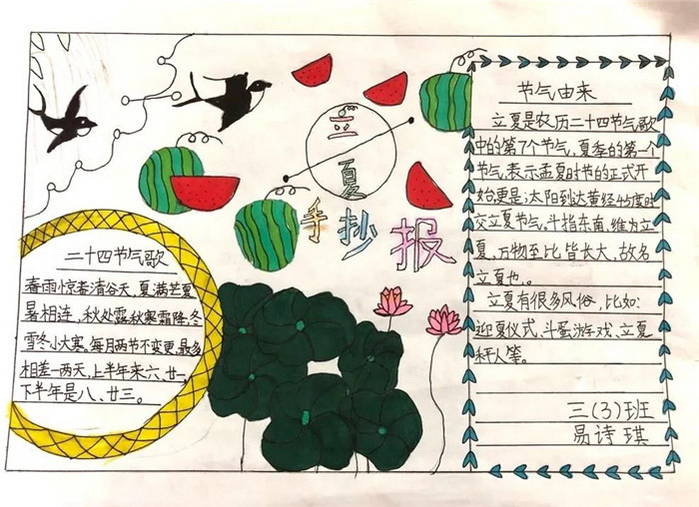 立
夏
手抄报
二十四节气歌
春雨惊春清谷天,夏满芒夏
暑相连,秋处露秋寒霜降,冬
雪冬小大寒,每月两节不变更,最多
相差一两天,上半年来六、廿一,
下半年是八、廿三。
节气由来
立夏是农历二十四节气歌
中的第7个节气,夏季的第一个
节气,表示孟夏时节的正式开
始更是;太阳到达黄经45度时
交立夏节气,斗指东南,维为立
夏,万物至比皆长大,故名
立夏也。
立夏有很多风俗,比如:
迎夏仪式、斗蛋游戏、立夏
秤人等。
三(3)班
易诗琪